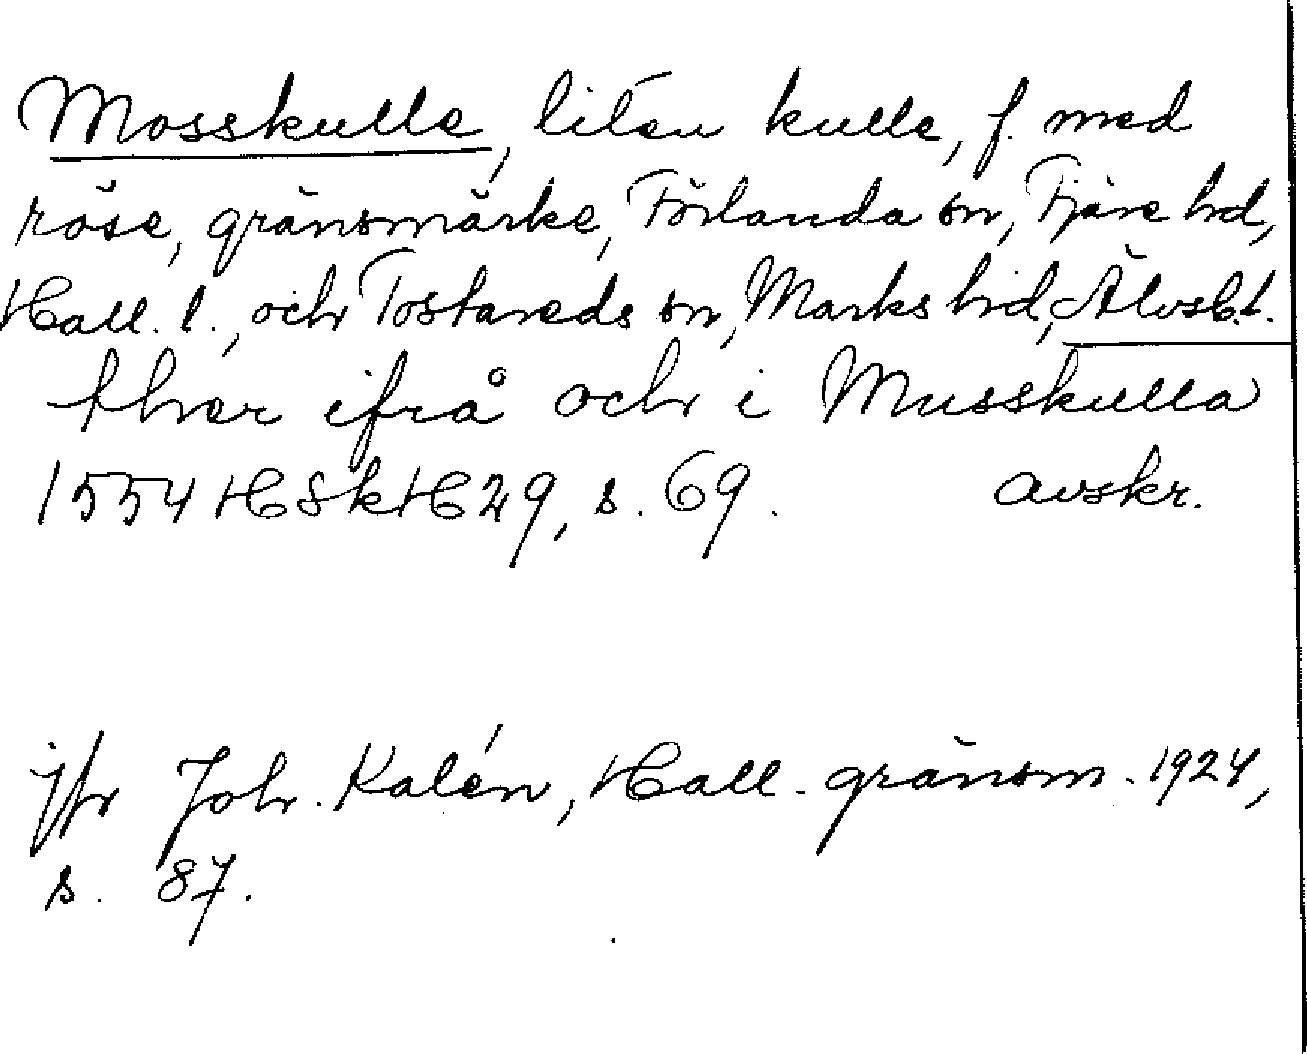 Mosskulle, liten kulle, f. med
röse, gränsmärke, Förlanda sn, Fjäre hd,
Hall. l., och Tostareds sn, Marks hd, Älvsb.l.
ther ifrå och i Musskulla
1554 HSkH 29, s. 69. avskr.
jfr Joh. Kalén, Hall. gränsm. 1924,
s. 87.